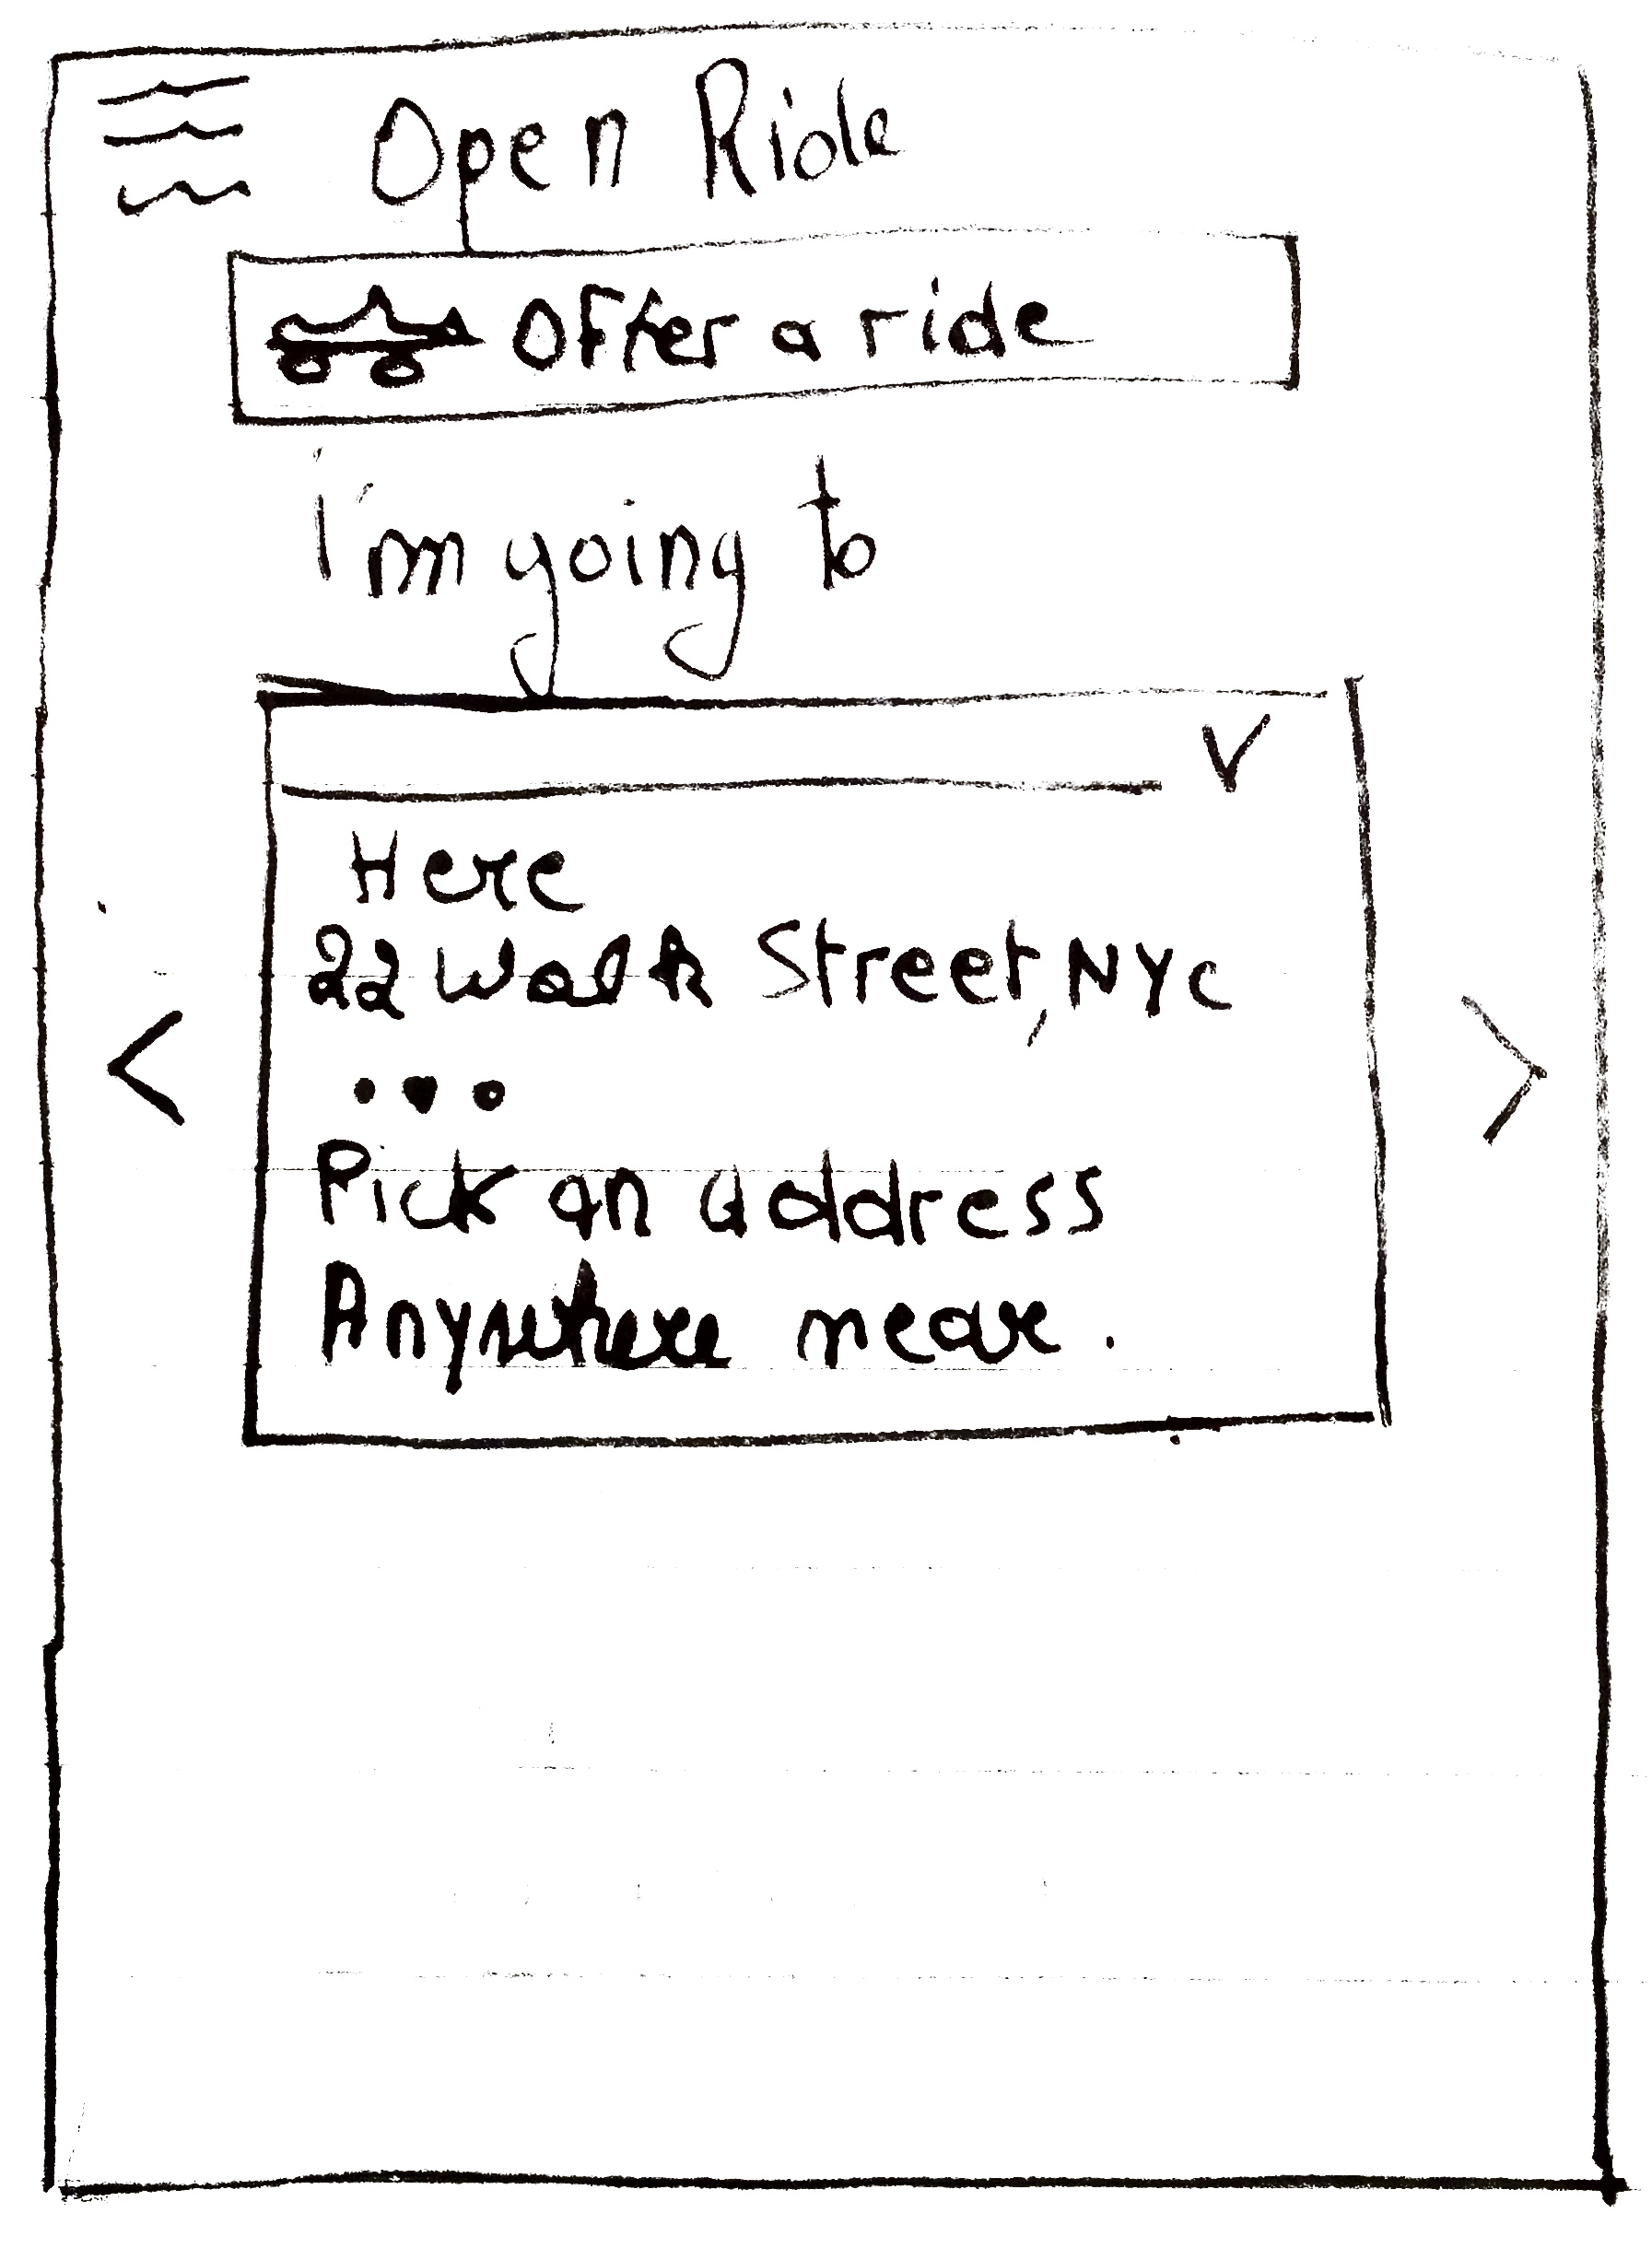 Open Ride
Offer a ride
I'm going to
Here
22 Walk Street, NYC
...
Pick an address
Anywhere near.